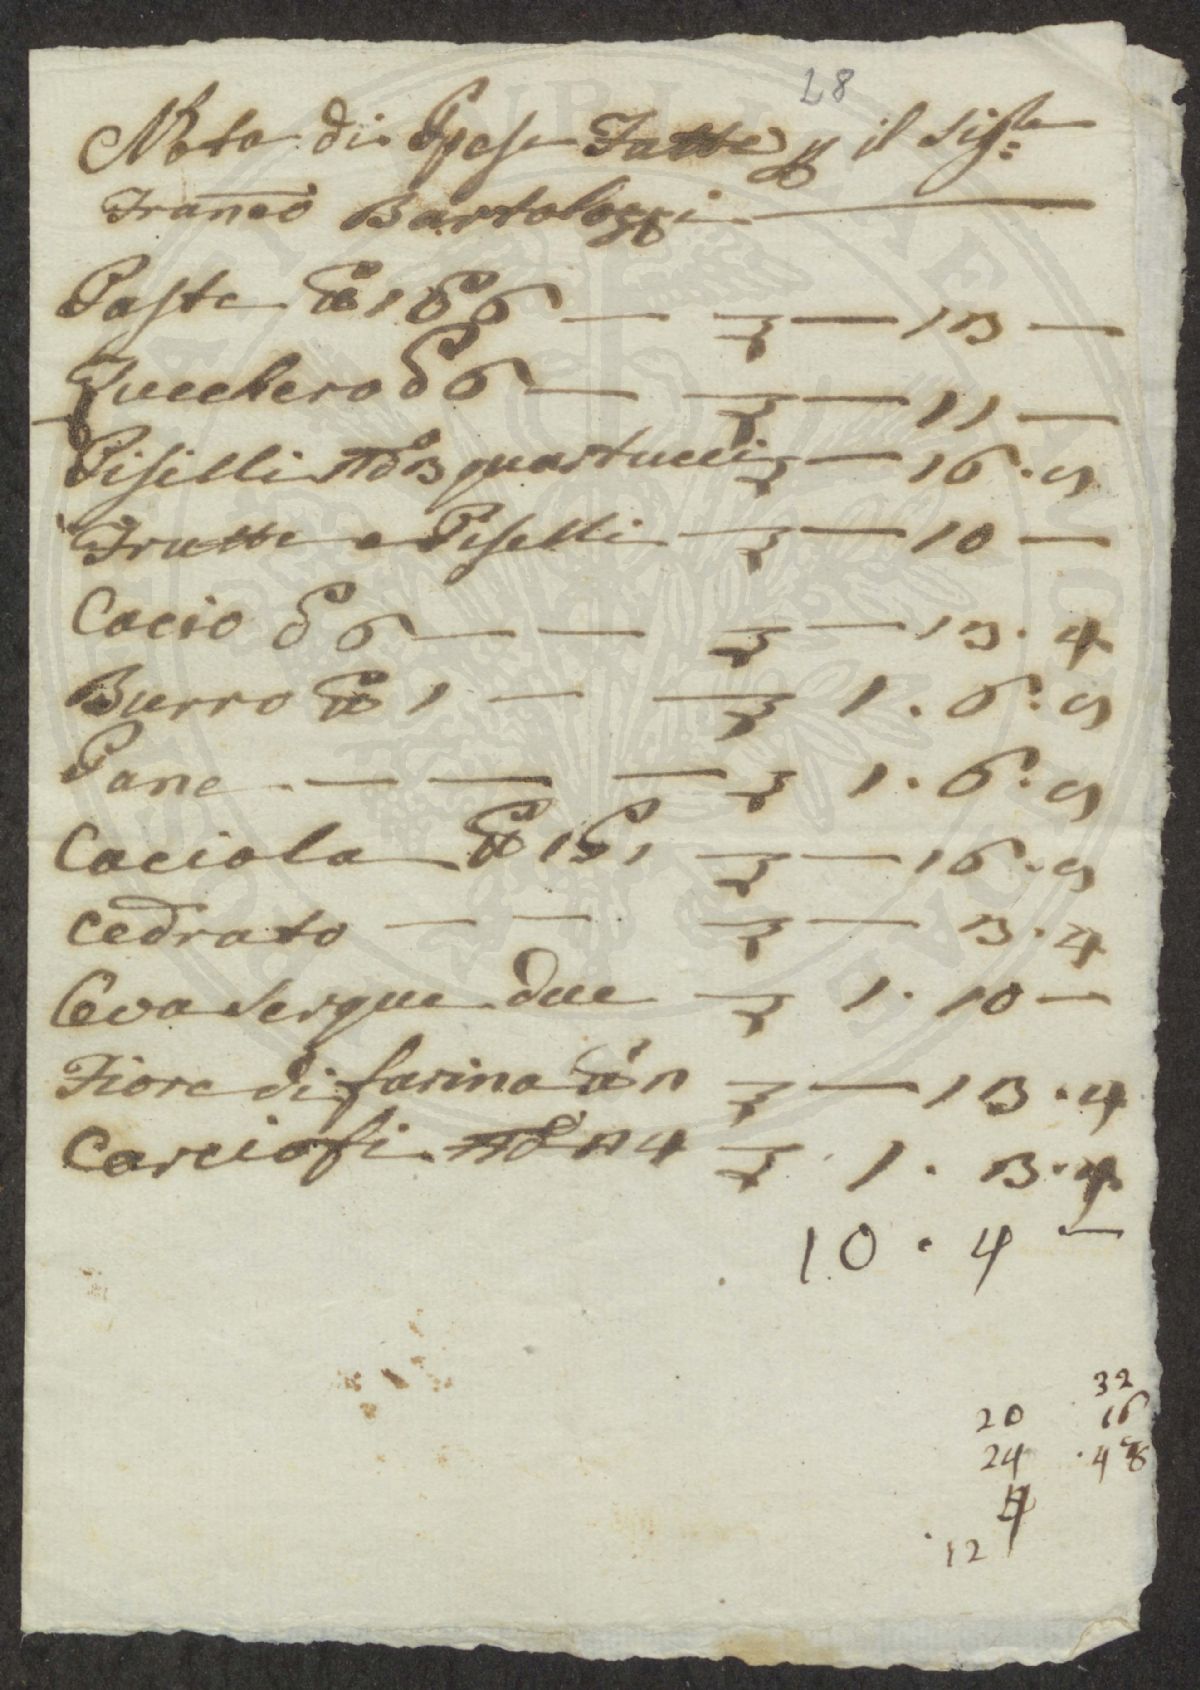 28
Nota di Spese Fatte p il Sig.re
Franco Bartolozzi
Paste lb 1 6 — £ — 13 —
Zucchero 6 — £ — 11 —
Piselli quartucci £ — 16 . 9
Frutte e Piselli £ — 10 —
Cacio 6 — — £ — 13 . 4
Burro lb 1 — £ 1 . 6 . 9
Pane — — — £ 1 . 6 . 9
Caciola lb 1 £ — 16 . 9
Cedrato — — £ — 13 . 4
Ova Serque due £ 1 . 10 —
Fiore di farina £ — 13 . 4
Carciofi £ 1 . 13 . 4
10 . 4 —
32
20 16
24 . 48
12